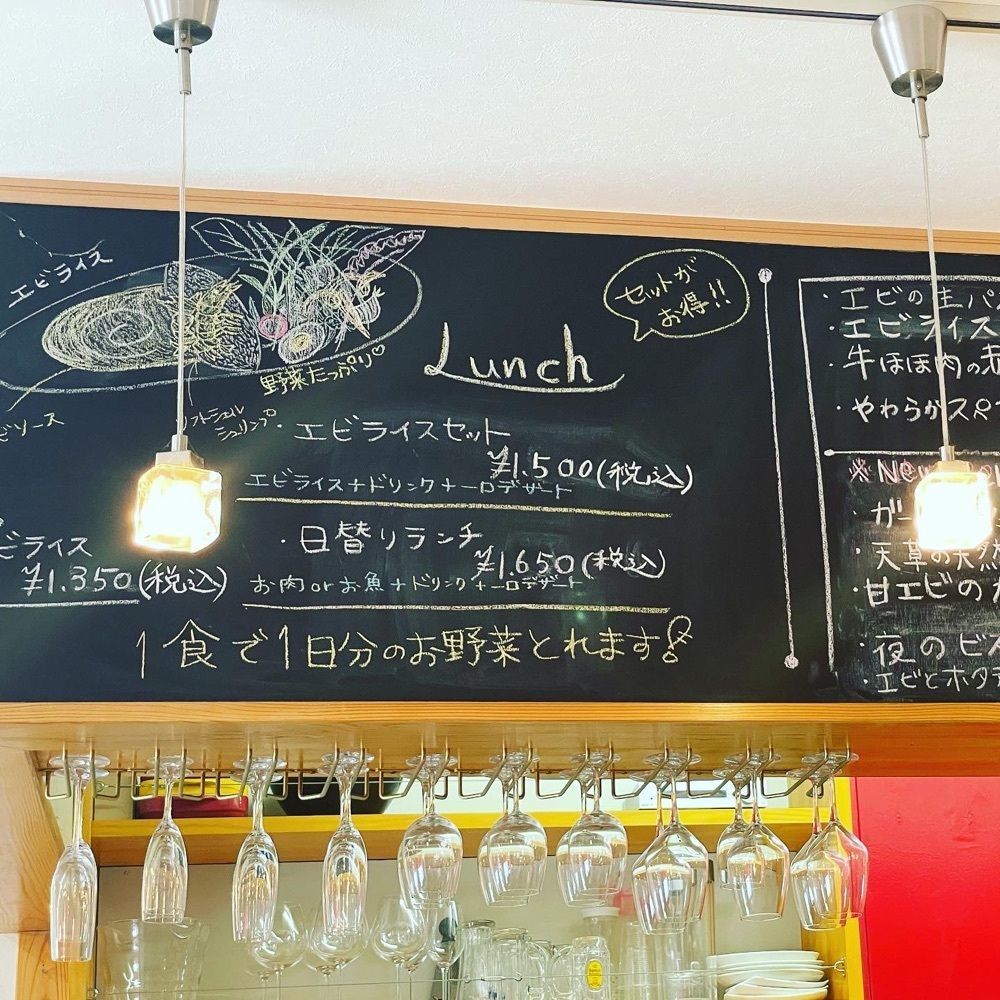 エビライス
野菜たっぷり♡
ソフトシェル
シュリンプ
ビソース
Lunch
セットが
お得!!
・エビライスセット
¥1.500(税込)
エビライス+ドリンク+一口デザート
・日替りランチ
¥1.650(税込)
お肉orお魚+ドリンク+一口デザート
ビライス
¥1.350(税込)
1食で1日分のお野菜とれます!
・エビの生パ
・エビライス
・牛ほほ肉の
・やわらか
※New
・ガー
・天草の天然
・甘エビの
・夜のビス
・エビとホタテ